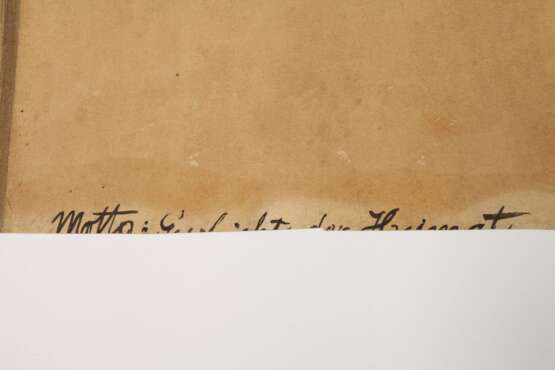 Motto: Geschichte der Heimat,